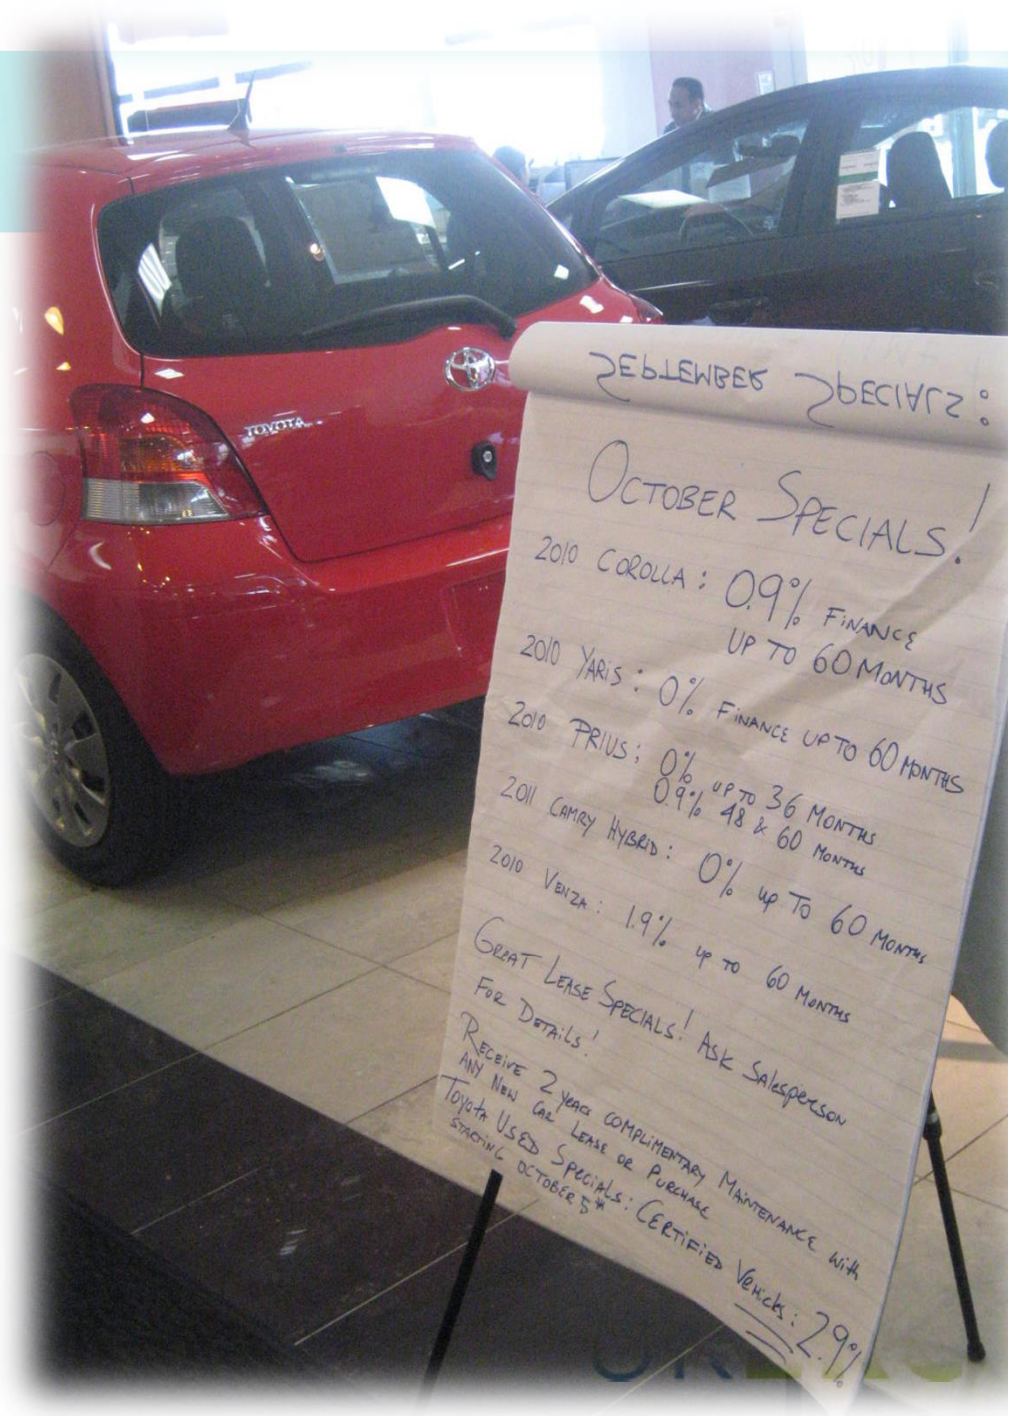 SEPTEMBER SPECIALS:
OCTOBER SPECIALS!
2010 COROLLA: 0.9% FINANCE
UP TO 60 MONTHS
2010 YARIS: 0% FINANCE UP TO 60 MONTHS
2010 PRIUS: 0% UP TO 36 MONTHS
0.9% 48 & 60 MONTHS
2011 CAMRY HYBRID: 0% up To 60 MONTHS
2010 VENZA: 1.9% up TO 60 MONTHS
GREAT LEASE SPECIALS! ASK SALESPERSON
FOR DETAILS!
RECEIVE 2 years COMPLIMENTARY MAINTENANCE with
ANY NEW CAR LEASE OR PURCHASE
Toyota USED SPECIALS: CERTIFIED Vehicles: 2.9%
STARTING OCTOBER 5TH
TOYOTA